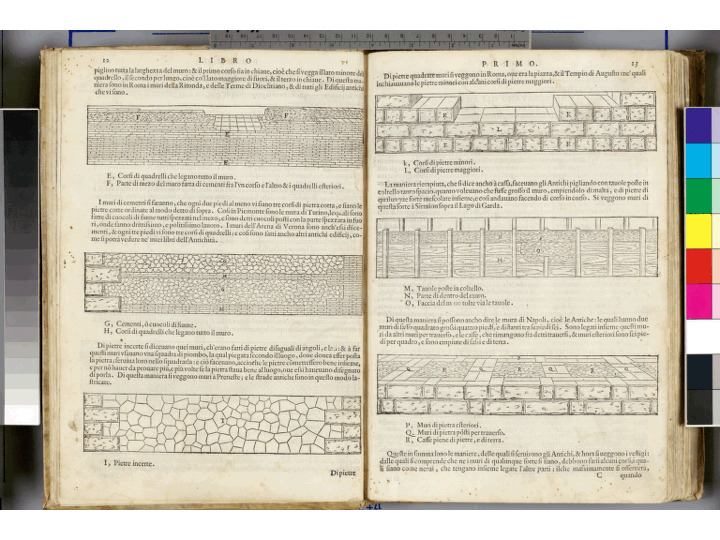 12 LIBRO
pigli no tutta la larghezza del muro: & il primo corso sia in chiaue, cioè che si vegga il lato minore del
quadrello, il secondo per lungo, cioè co'l lato maggiore di fuori, & il terzo in chiaue. Di questa ma
niera sono in Roma i muri della Ritonda, e delle Terme di Diocletiano, & di tutti gli Edificij antichi
che vi sono.
F F
E
E
E, Corsi di quadrelli che legano tutto il muro.
F, Parte di mezo del muro fatta di cementi fra l'vn corso e l'altro & i quadrelli esteriori.
I muri di cementi si faranno, che ogni due piedi al meno vi siano tre corsi di pietra cotta, e siano le
pietre cotte ordinate al modo detto di sopra. Così in Piemonte sono le mura di Turino, le quali sono
fatte di cuocoli di fiume tutti spezzati nel mezo, e sono detti cuocoli posti con la parte spezzata in fuo
ri, onde fanno drittissimo, e politissimo lauoro. I muri dell'Arena di Verona sono anch'essi di ce-
menti, & ogni tre piedi vi sono tre corsi di quadrelli; e così sono fatti ancho altri antichi edificij, co-
me si potrà vedere ne' miei libri dell'Antichità.
G
H
G
H
G, Cementi, ò cuocoli di fiume.
H, Corsi di quadrelli che legano tutto il muro.
Di pietre incerte si diceuano quei muri, ch'erano fatti di pietre disuguali di angoli, e & à far
questi muri vsauano vna squadra di piombo, la qual piegata secondo il luogo, doue doueua esser posta
la pietra, seruiua loro nello squadrarla: e ciò faceuano, acciochè le pietre commettessero bene insieme,
e per nõ hauer da prouare più, e più volte se la pietra staua bene al luogo, oue essi haueuano disegnato
di porla. Di questa maniera si veggono muri à Preneste; e le strade antiche sono in questo modo la-
stricate.
I
I, Pietre incerte.
Di pietre
PRIMO. 13
Di pietre quadrate muri si veggono in Roma, oue era la piazza, & il Tempio di Augusto ne' quali
inchiauauano le pietre minori con alcuni corsi di pietre maggiori.
K K
L
K K
K, Corsi di pietre minori.
L, Corsi di pietre maggiori.
La maniera riempiuta, che si dice ancho à cassa, faceuano gli Antichi pigliando con tauole poste in
coltello tanto spacio, quanto voleuano che fusse grosso il muro, empiendolo di malta, e di pietre di
qualunque sorte mescolate insieme, e così andauano facendo di corso in corso. Si veggono muri di
questa sorte à Sirmion sopra il Lago di Garda.
M, Tauole poste in coltello.
N, Parte di dentro del muro.
O, Faccia del muro tolte via le tauole.
Di questa maniera si possono ancho dire le mura di Napoli, cioè le Antiche: le quali hanno due
muri di sasso quadrato grossi quattro piedi, e distanti tra se piedi sei. Sono legati insieme questi mu-
ri da altri muri per trauerso, e le casse, che rimangono fra detti trauersi, & muri esteriori sono sei pie-
di per quadro, e sono empiute di sassi e di terra.
P, Muri di pietra esteriori.
Q, Muri di pietra posti per trauerso.
R, Casse piene di pietre, e di terra.
Queste in somma sono le maniere, delle quali si seruirono gli Antichi, & hora si ueggono i vestigi:
dalle quali si comprende che ne i muri di qualunque sorte si siano, debbono farsi alcuni corsi, i qua-
li siano come nerui, che tengano insieme legate l'altre parti; ilche massimamente si osseruerà,
C quando